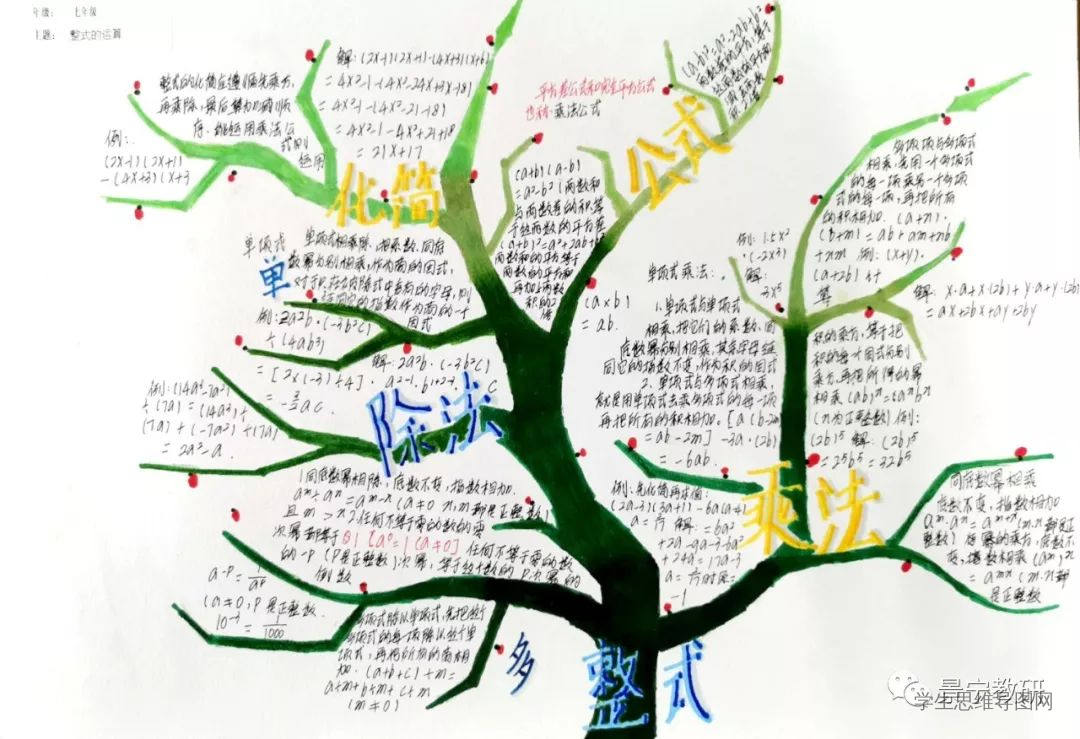 年级： 七年级
主题： 整式的运算
整式的化简应遵循先乘方，
再乘除，最后算加减的顺
序，能运用乘法公
式的则
运用
例：
(2x-1)(2x+1)
-(4x+3)(x+3
解：(2x+1)(2x+1)-(4x+3)(x+6)
=4x²-1-(4x²-24x+3x+18)
=4x²-1-(4x²-21-18)
=4x²-1-4x²+21+18
=21x+17
化简
平方差公式和完全平方公式
也称·乘法公式
公式
(a-b)²=a²-2ab+b²
(a+b)(a-b)
=a²-b²(两数和
与两数差的积，等
于这两数的平方差
(a+b)²=a²+2ab+b²
两数和的平方等于
两数的平方和
再加上两数
积的2
倍
(a×b)
=ab.
多项项与多项式
相乘，先用一个多项式
的每一项乘另一个多项
式的每一项，再把所得
的积相加. (a+n)·
(b+m)=ab+am+nb
+nm 例：(x+y)·
(a+2b)
解：x·a+x·(2b)+y·a+y·(2b)
=ax+2bx+ay+2by
例：1.5x²
·(-2x³)
解：
-3x⁵
单项式
单项式相乘除，把系数、同底
数幂分别相乘，作为商的因式，
对于只在被除式中含有的字母，则
连同它的指数作为商的一个
因式
单
例：2a²b·(-3b²c)
÷(4ab³)
解：2a²b·(-3b²c)
=[2×(-3)÷4]·a²⁻¹·b¹⁺²⁻³·c
=-3/2ac.
单项式乘法：
1.单项式与单项式
相乘，把它们的系数、同
底数幂分别相乘，其余字母连
同它的指数不变，作为积的因式
2.单项式与多项式相乘，
就是用单项式去乘多项式的每一项
再把所有的积相加.[a(b-2m)
=ab-2m] -3a·(2b)
=-6ab.
积的乘方，等于把
积的每一个因式分别
乘方，再把所得的幂
相乘(ab)ⁿ=aⁿbⁿ
(n为正整数)例：
(2b)⁵ 解：(2b)⁵
=2⁵b⁵=32b⁵
例：(14a³-7a²)
÷(7a)=(14a³)÷
(7a)+(-7a²)÷(7a)
=2a²-a.
除法
1同底数幂相除，底数不变，指数相加.
aᵐ÷aⁿ=aᵐ⁻ⁿ(a≠0 n,m都是正整数)
且m>n 2.任何不等于零的数的零
次幂都等于1 [a⁰=1(a≠0] 任何不等于零的数
的-P(P是正整数)次幂，等于这个数的P次幂的
倒数
a⁻ᴾ=1/aᴾ
(a≠0,P是正整数.
10⁻³=1/1000
多项式除以单项式，先把这个
多项式的每一项除以这个单
项式，再把所得的商相
加.(a+b+c)÷m=
a÷m+b÷m+c÷m
(m≠0)
多
例：先化简再求值：
(2a-3)(3a+1)-6a(a-4)
解：=6a²
+2a-9a-3-6a²
+24a=17a-3
-1
乘法
同底数幂相乘
底数不变，指数相加
aᵐ·aⁿ=aᵐ⁺ⁿ(m.n都是正
整数)②幂的乘方，底数不
变，指数相乘(aᵐ)ⁿ
=aᵐⁿ(m.n都
是正整数
整式
景宁教研
学生思维导图网